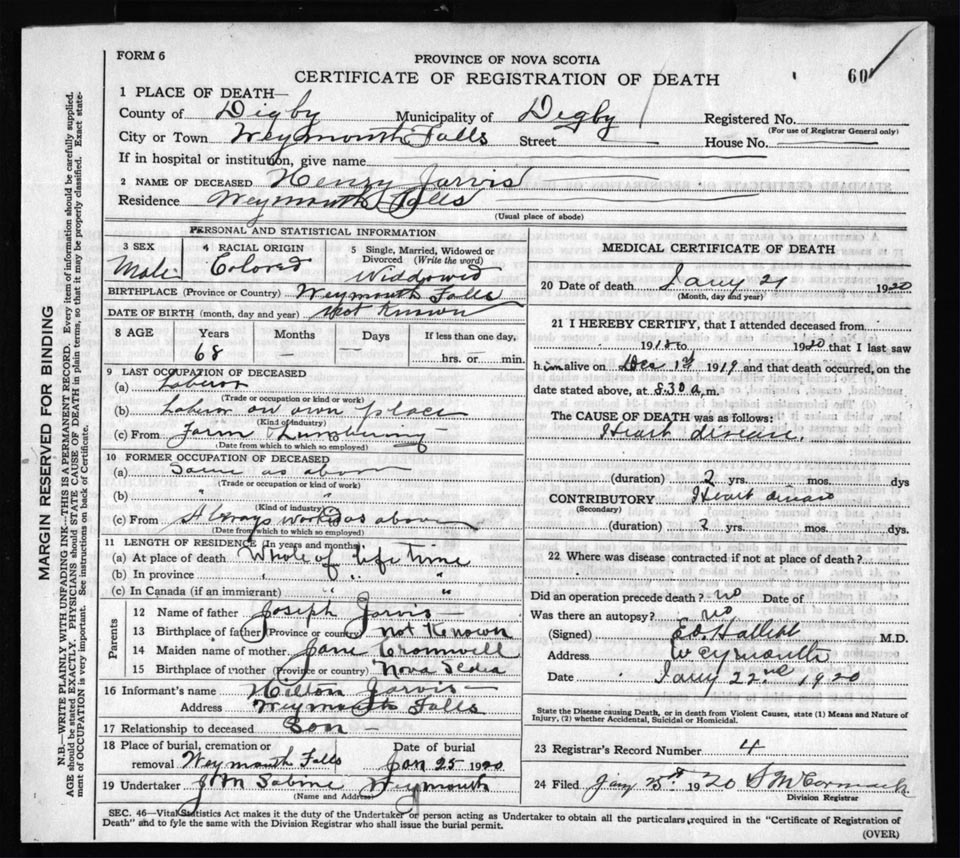 FORM 6
PROVINCE OF NOVA SCOTIA
CERTIFICATE OF REGISTRATION OF DEATH
60
1 PLACE OF DEATH—
County of Digby Municipality of Digby Registered No.
(For use of Registrar General only)
City or Town Weymouth Falls Street House No.
If in hospital or institution, give name
2 NAME OF DECEASED Henry Jarvis
Residence Weymouth Falls
(Usual place of abode)
PERSONAL AND STATISTICAL INFORMATION
3 SEX Male
4 RACIAL ORIGIN Colored
5 Single, Married, Widowed or Divorced (Write the word) Widdowed
BIRTHPLACE (Province or Country) Weymouth Falls
DATE OF BIRTH (month, day and year) Not Known
8 AGE Years Months Days If less than one day,
68 — — hrs. or min.
9 LAST OCCUPATION OF DECEASED
(a) Laberor
(Trade or occupation or kind of work)
(b) Laberor on own place
(Kind of industry)
(c) From Farm & Lumbering
(Date from which to which so employed)
10 FORMER OCCUPATION OF DECEASED
(a) Same as above
(Trade or occupation or kind of work)
(b) " "
(Kind of industry)
(c) From Always worked as above
(Date from which to which so employed)
11 LENGTH OF RESIDENCE (In years and months)
(a) At place of death Whole of life time
(b) In province " " "
(c) In Canada (if an immigrant) " "
Parents
12 Name of father Joseph Jarvis
13 Birthplace of father (Province or country) Not Known
14 Maiden name of mother Jane Cromwell
15 Birthplace of mother (Province or country) Nova Scotia
16 Informant's name Hilton Jarvis
Address Weymouth Falls
17 Relationship to deceased Son
18 Place of burial, cremation or removal Weymouth Falls Date of burial Jan 25 1920
19 Undertaker J M Sabine Weymouth
(Name and Address)
MEDICAL CERTIFICATE OF DEATH
20 Date of death Jany 21 1920
(Month, day and year)
21 I HEREBY CERTIFY, that I attended deceased from
1918 to 1920 that I last saw
him alive on Dec 1st 1919 and that death occurred, on the
date stated above, at 8.30 a.m.
The CAUSE OF DEATH was as follows:
Heart disease.
(duration) 2 yrs. mos. dys
CONTRIBUTORY Heart disease
(Secondary)
(duration) 2 yrs. mos. dys.
22 Where was disease contracted if not at place of death?
Did an operation precede death? no Date of
Was there an autopsy? no
(Signed) M.D.
Address Weymouth
Date Jany 22nd 1920
State the Disease causing Death, or in death from Violent Causes, state (1) Means and Nature of
Injury, (2) whether Accidental, Suicidal or Homicidal.
23 Registrar's Record Number 4
24 Filed Jany 1920 S McCormack
Division Registrar
SEC. 46—Vital Statistics Act makes it the duty of the Undertaker or person acting as Undertaker to obtain all the particulars required in the "Certificate of Registration of
Death" and to fyle the same with the Division Registrar who shall issue the burial permit.
(OVER)
MARGIN RESERVED FOR BINDING
N.B.—WRITE PLAINLY WITH UNFADING INK—THIS IS A PERMANENT RECORD. Every item of information should be carefully supplied.
AGE should be stated EXACTLY. PHYSICIANS should STATE CAUSE OF DEATH in plain terms, so that it may be properly classified. Exact state-
ment of OCCUPATION is very important. See instructions on back of Certificate.